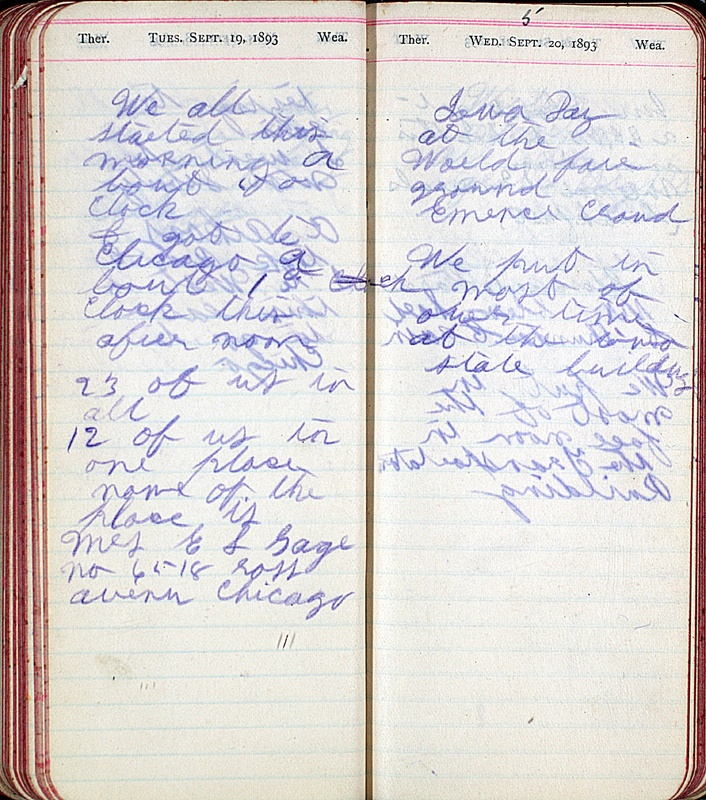 Ther. Tues. Sept. 19, 1893 Wea.
We all
started this
morning a
bout
Clock
& got to
Chicago a
bout 1
Clock this
after noon
23 of us in
all
12 of us in
one place
name of the
place is
Mrs E S Gage
no 6518 Ross
avenu Chicago
5
Ther. Wed. Sept. 20, 1893 Wea.
Iowa Day
at the
World fare
ground
Emence Croud
We put in
most of
ower time
at the
state building